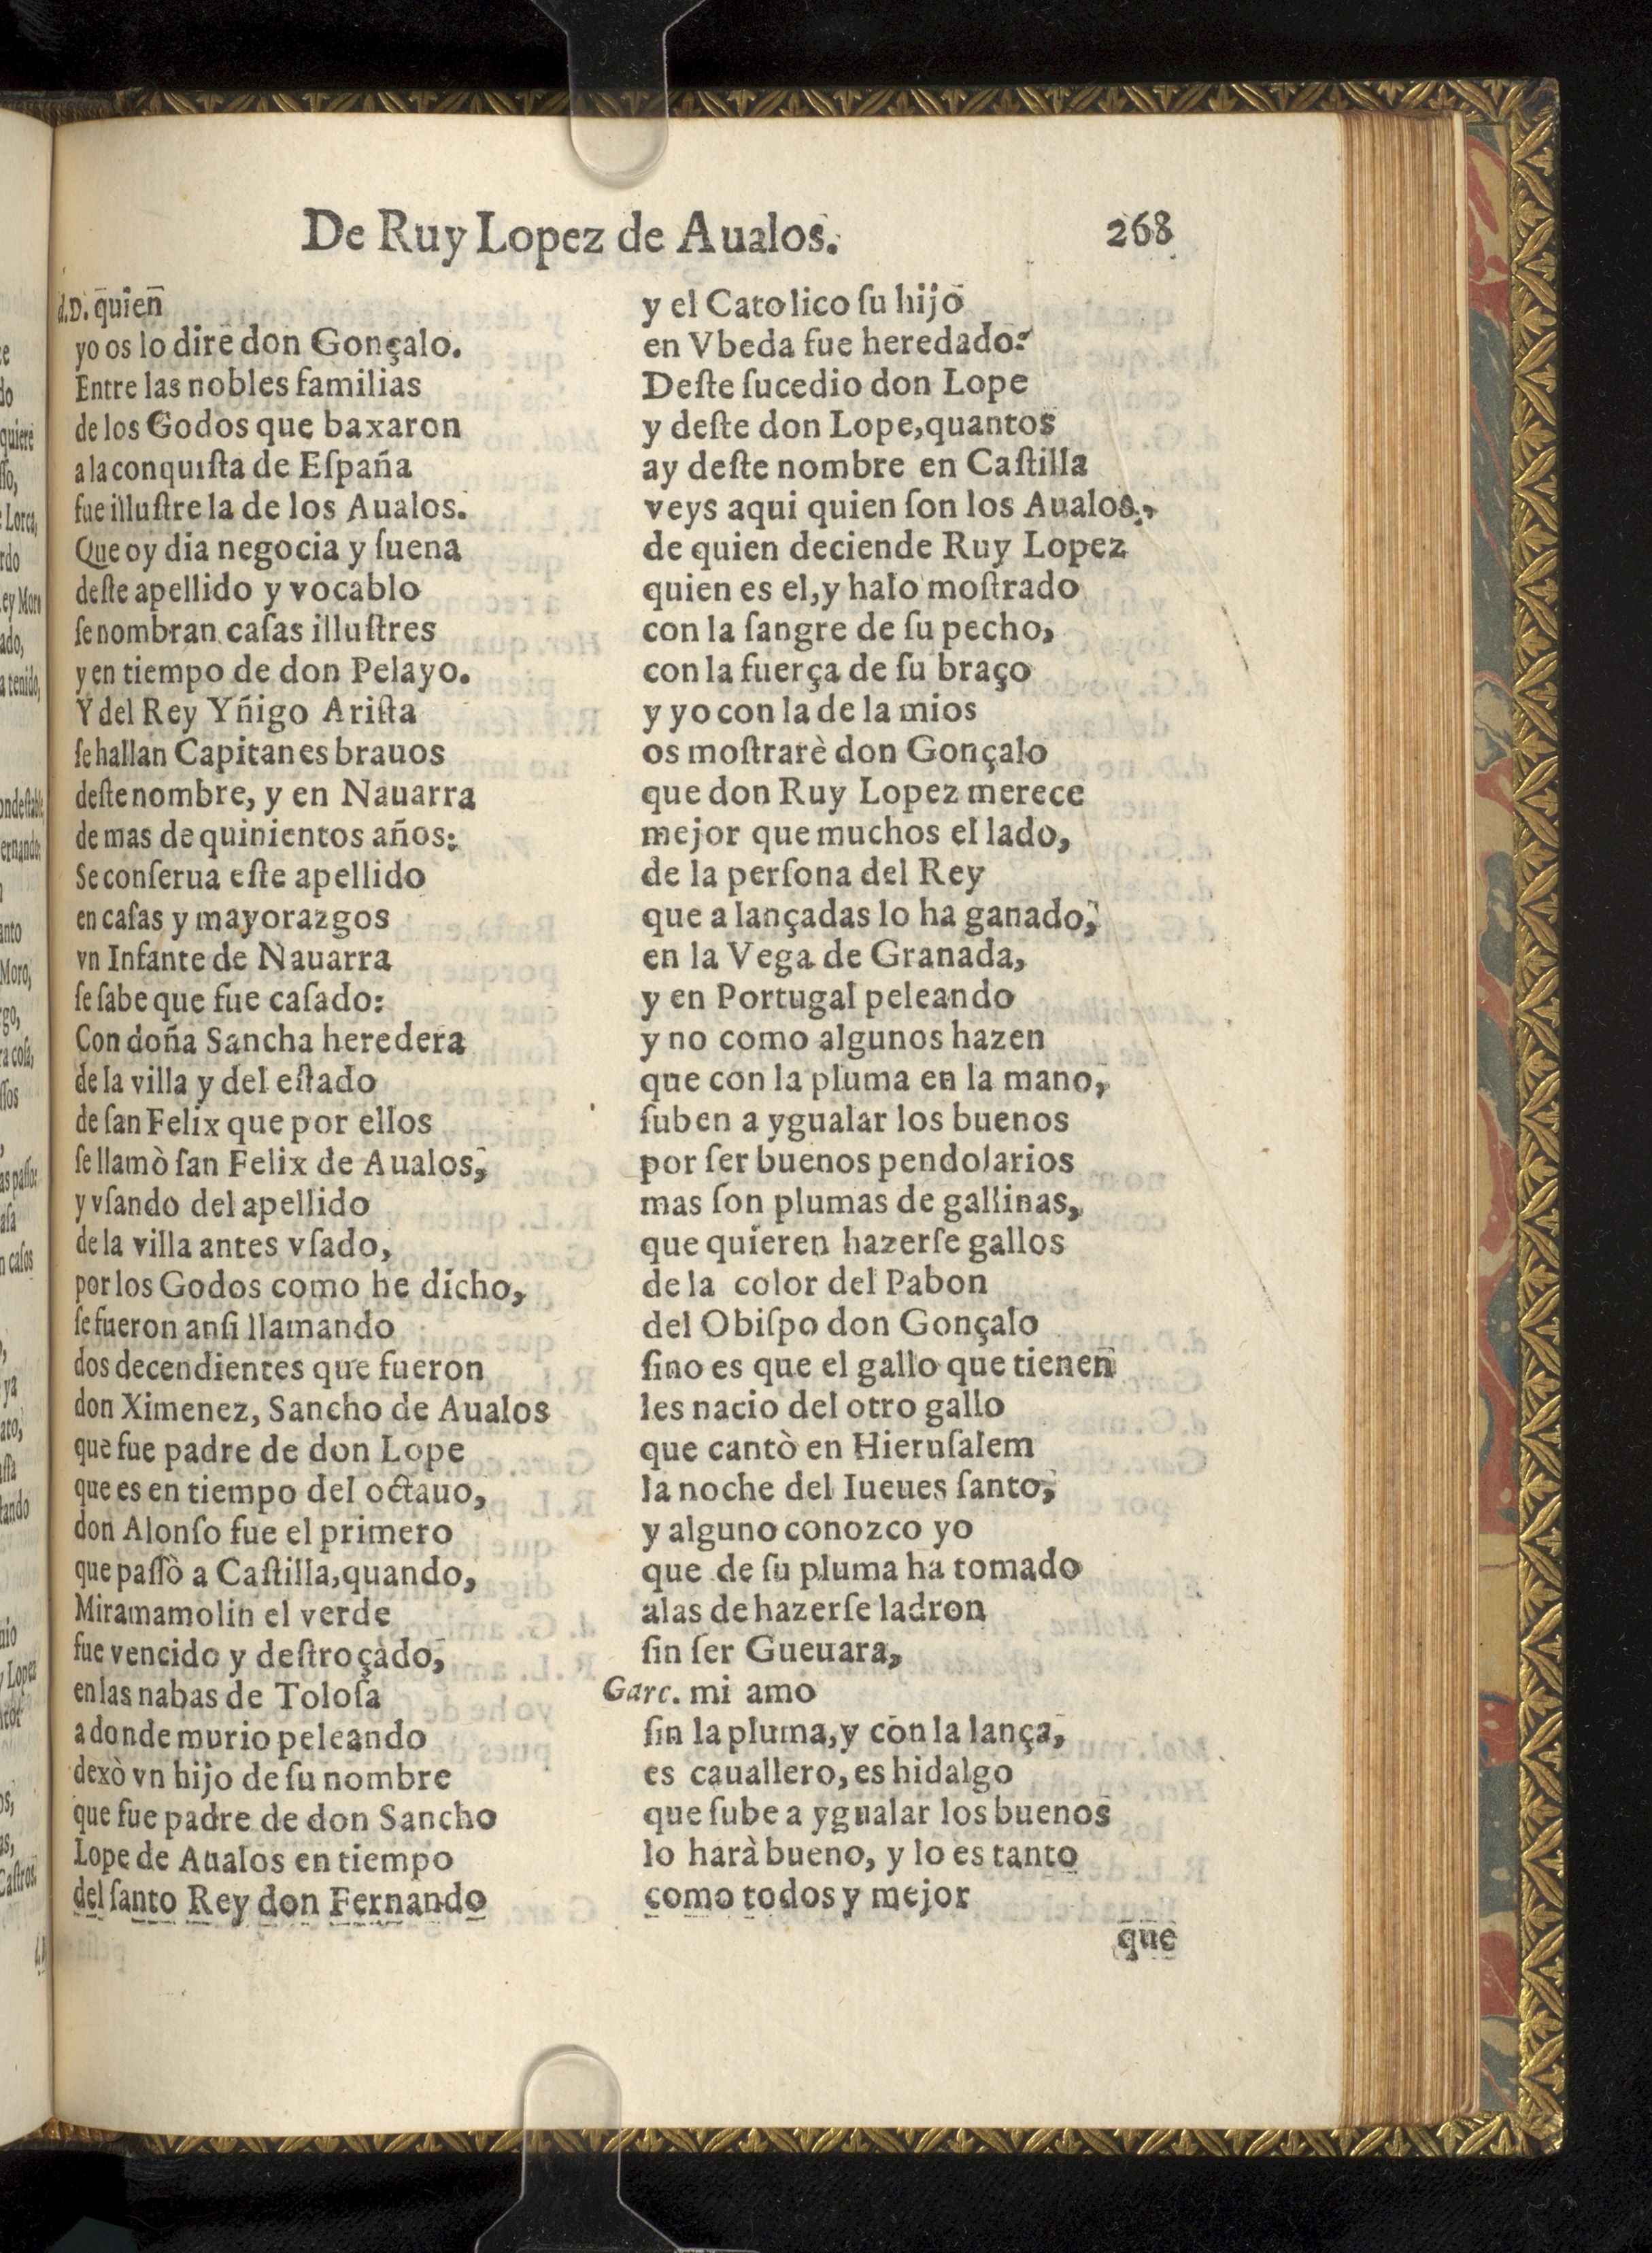 De Ruy Lopez de Aualos. 268
d.D. quien
yo os lo dire don Gonçalo.
Entre las nobles familias
de los Godos que baxaron
a la conquiſta de Eſpaña
fue illuſtre la de los Aualos.
Que oy dia negocia y ſuena
deſte apellido y vocablo
ſe nombran caſas illuſtres
y en tiempo de don Pelayo.
Y del Rey Yñigo Ariſta
ſe hallan Capitanes brauos
deſte nombre, y en Nauarra
de mas de quinientos años:
Se conſerua eſte apellido
en caſas y mayorazgos
vn Infante de Nauarra
ſe ſabe que fue caſado:
Con doña Sancha heredera
de la villa y del eſtado
de ſan Felix que por ellos
ſe llamò ſan Felix de Aualos,
y vſando del apellido
de la villa antes vſado,
por los Godos como he dicho,
ſe fueron anſi llamando
dos decendientes que fueron
don Ximenez, Sancho de Aualos
que fue padre de don Lope
que es en tiempo del octauo,
don Alonſo fue el primero
que paſſò a Caſtilla, quando,
Miramamolin el verde
fue vencido y deſtroçado,
en las nabas de Toloſa
a donde murio peleando
dexò vn hijo de ſu nombre
que fue padre de don Sancho
Lope de Aualos en tiempo
del ſanto Rey don Fernando
y el Catolico ſu hijo
en Vbeda fue heredado:
Deſte ſucedio don Lope
y deſte don Lope, quantos
ay deſte nombre en Caſtilla
veys aqui quien ſon los Aualos,
de quien deciende Ruy Lopez
quien es el, y halo moſtrado
con la ſangre de ſu pecho,
con la fuerça de ſu braço
y yo con la de la mios
os moſtrarè don Gonçalo
que don Ruy Lopez merece
mejor que muchos el lado,
de la perſona del Rey
que a lançadas lo ha ganado,
en la Vega de Granada,
y en Portugal peleando
y no como algunos hazen
que con la pluma en la mano,
ſuben a ygualar los buenos
por ſer buenos pendolarios
mas ſon plumas de gallinas,
que quieren hazerſe gallos
de la color del Pabon
del Obiſpo don Gonçalo
ſino es que el gallo que tienen
les nacio del otro gallo
que cantò en Hieruſalem
la noche del Iueues ſanto,
y alguno conozco yo
que de ſu pluma ha tomado
alas de hazerſe ladron
ſin ſer Gueuara,
Garc. mi amo
ſin la pluma, y con la lança,
es cauallero, es hidalgo
que ſube a ygualar los buenos
lo harà bueno, y lo es tanto
como todos y mejor
que